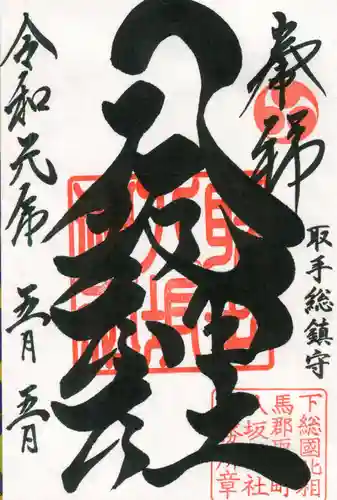 奉拝
取手総鎮守
八坂神社
令和元年
五月
五日
下総國北相
馬郡取手町
八坂神社